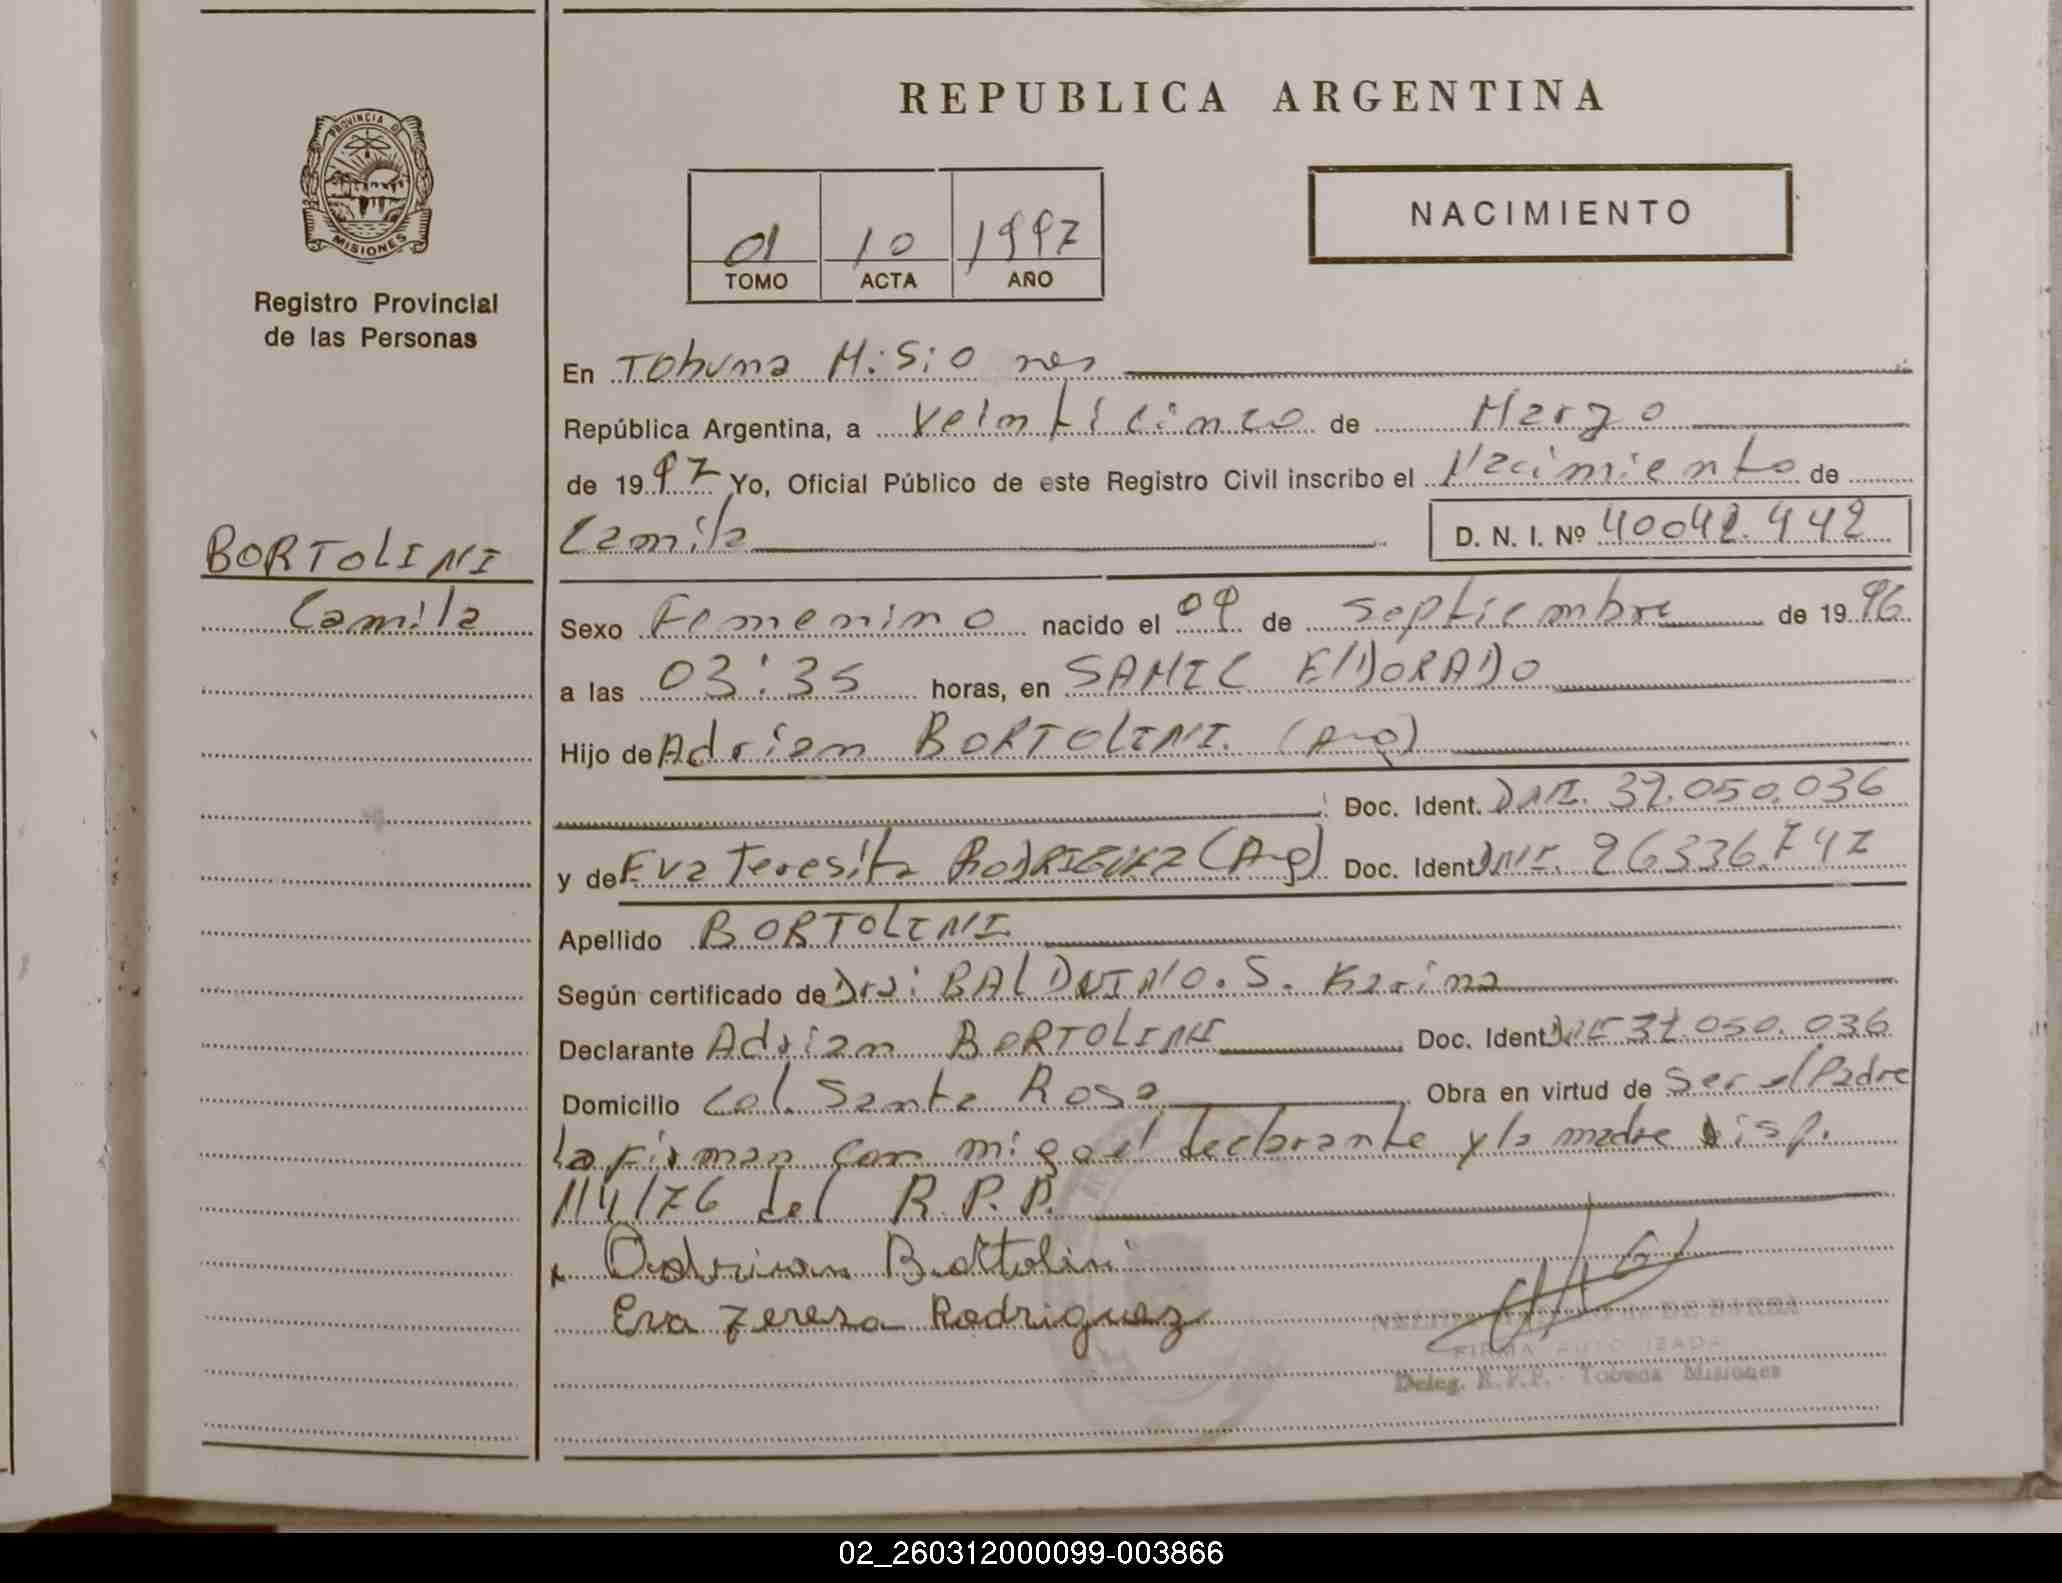 REPUBLICA ARGENTINA
PROVINCIA DE
MISIONES
Registro Provincial
de las Personas
01 10 1997
TOMO ACTA AÑO
NACIMIENTO
En Tobuna Misiones
República Argentina, a Veinticinco de Marzo
de 1997 Yo, Oficial Público de este Registro Civil inscribo el Nacimiento de
Camila D. N. I. Nº 40042.442
BORTOLINI
Camila
Sexo Femenino nacido el 09 de septiembre de 1996
a las 03:35 horas, en SAMIC ElDORADO
Hijo de Adrian BORTOLINI. (Arg)
Doc. Ident. DNI. .050.036
y de Eva Teresita RODRIGUEZ (Arg) Doc. Ident DNI. 26336.747
Apellido BORTOLINI
Según certificado de Dra: S. Karina
Declarante Adrian BORTOLINI Doc. Ident DNI .050.036
Domicilio Col. Santa Rosa Obra en virtud de Ser el Padre
La firman con migo el declarante y la madre Disp.
114/76 del R.P.P.
x Adrian Bortolini
Eva Teresa Rodriguez
DE
FIRMA AUTORIZADA
Deleg. R.P.P. - Tobuna Misiones
02_260312000099-003866